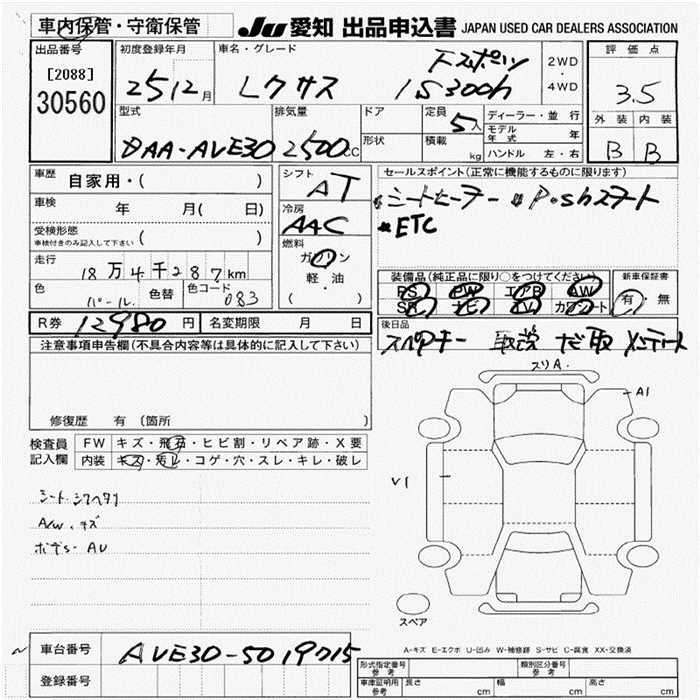 車内保管・守衛保管 JU 愛知 出品申込書 JAPAN USED CAR DEALERS ASSOCIATION
出品番号 初度登録年月 車名・グレード 2WD・4WD 評価点
[2088] 2512月 レクサス Fスポーツ IS300h 3.5
30560
型式 排気量 ドア 定員 5人 ディーラー・並行 外装 内装
DAA-AVE30 2500cc 形状 積載 kg モデル年式 年 B B
ハンドル 左・右
車歴 自家用・( ) シフト AT セールスポイント(正常に機能するものに限ります)
車検 年 月( 日) 冷房 AAC シートヒーター Pushスタート
受検形態 ( ) ETC
車検付きのみ記入して下さい
燃料 ガソリン
軽・油
( )
走行 18万4千287km 装備品(純正品に限り○をつけてください) 新車保証書
色 パール 色替 色コード 083 PS PW エアB AW 有・無
SR ナビ TV カワシート
R券 12980円 名変期限 月 日 後日品
スペアキー 取説 ナビ取
注意事項申告欄(不具合内容等は具体的に記入して下さい)
スリA.
A1
V1
修復歴 有 (箇所
検査員 FW キズ・飛石・ヒビ割・リペア跡・X要
記入欄 内装 キズ・汚レ・コゲ・穴・スレ・キレ・破レ
シート.シワヘタリ
A/W.キズ
ボデー AU
スペア
A-キズ E-エクボ U-凹み W-補修跡 S-サビ C-腐食 XX-交換済
車台番号 AVE30-5019715
登録番号
形式指定番号 参考 類別区分番号 参考
車庫証明用 参考 長さ cm 幅 cm 高さ cm